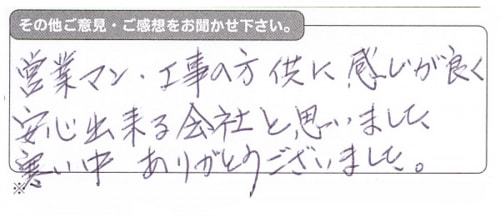 その他ご意見・ご感想をお聞かせ下さい。
営業マン・工事の方供に感じが良く
安心出来る会社と思いました、
寒い中 ありがとうございました。
※